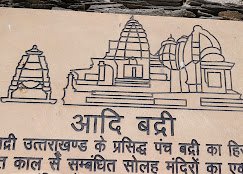 आदि बद्री
उत्तराखण्ड के प्रसिद्ध पंच बद्री का
काल से सम्बंधित सोलह मंदिरों का